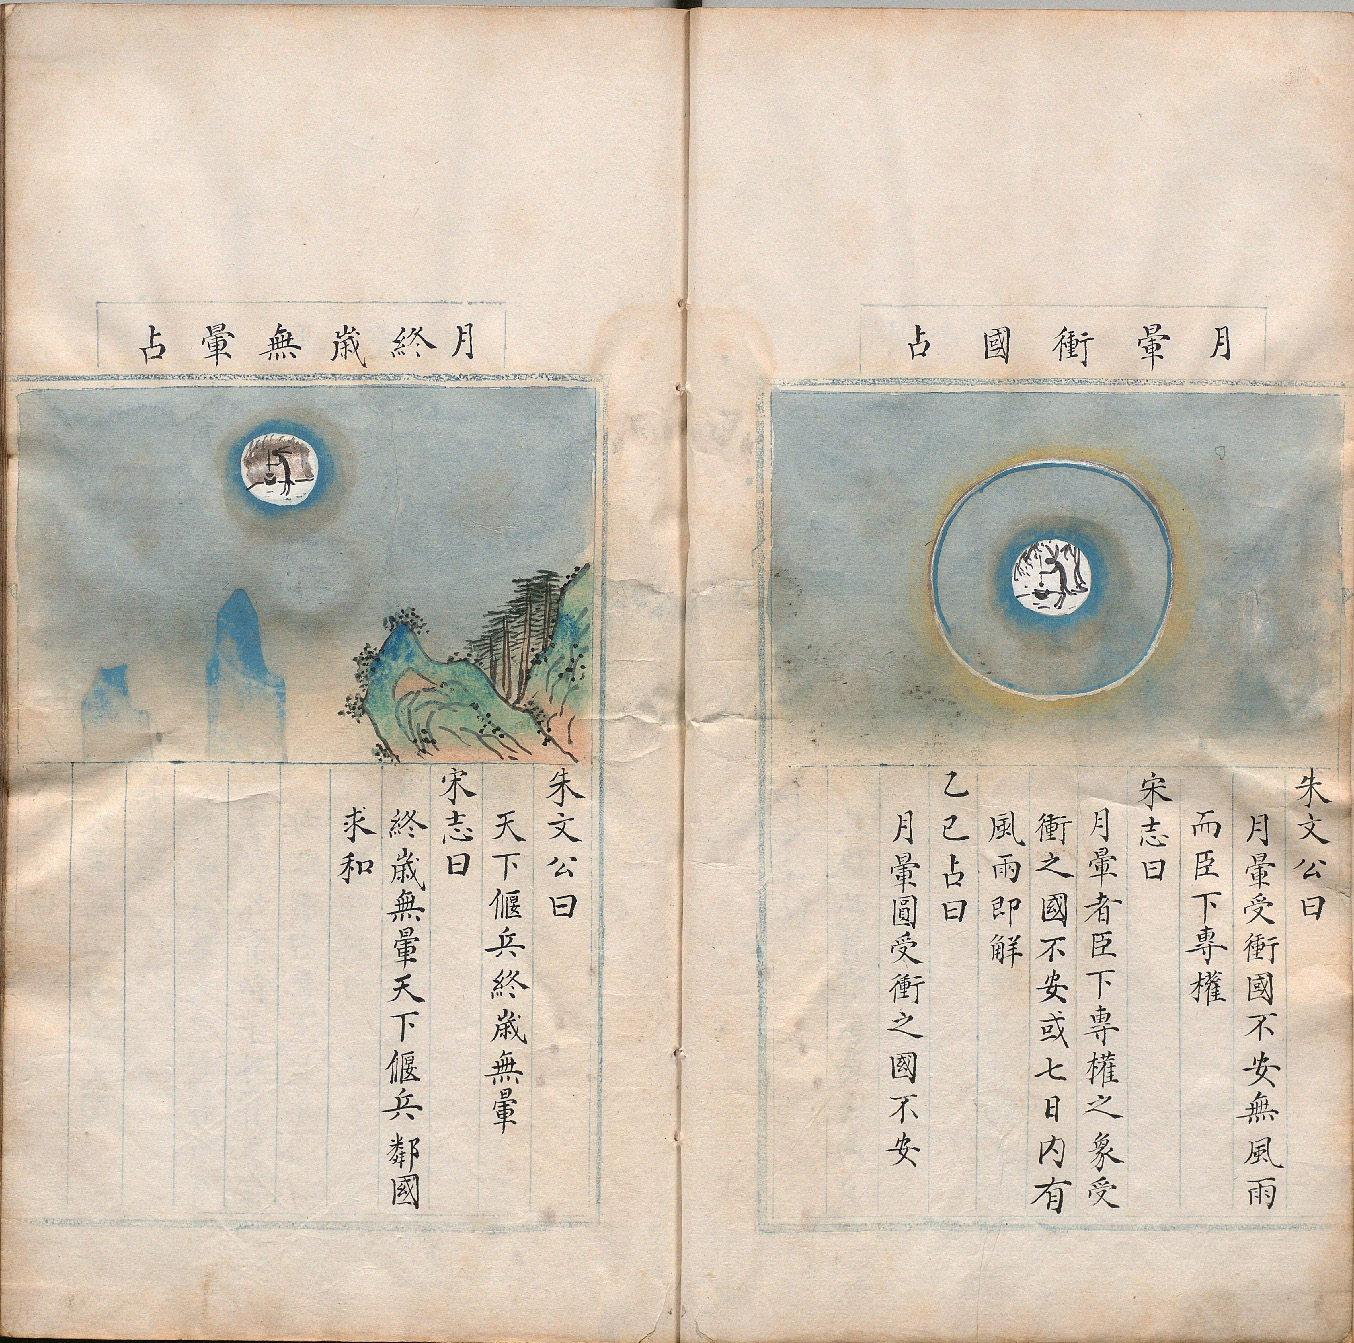 月暈衝國占
朱文公曰
月暈受衝國不安無風雨
而臣下專權
宋志曰
月暈者臣下專權之象受
衝之國不安或七日內有
風雨即解
乙巳占曰
月暈圓受衝之國不安
月終歳無暈占
朱文公曰
天下偃兵終歳無暈
宋志曰
終歳無暈天下偃兵鄰國
求和